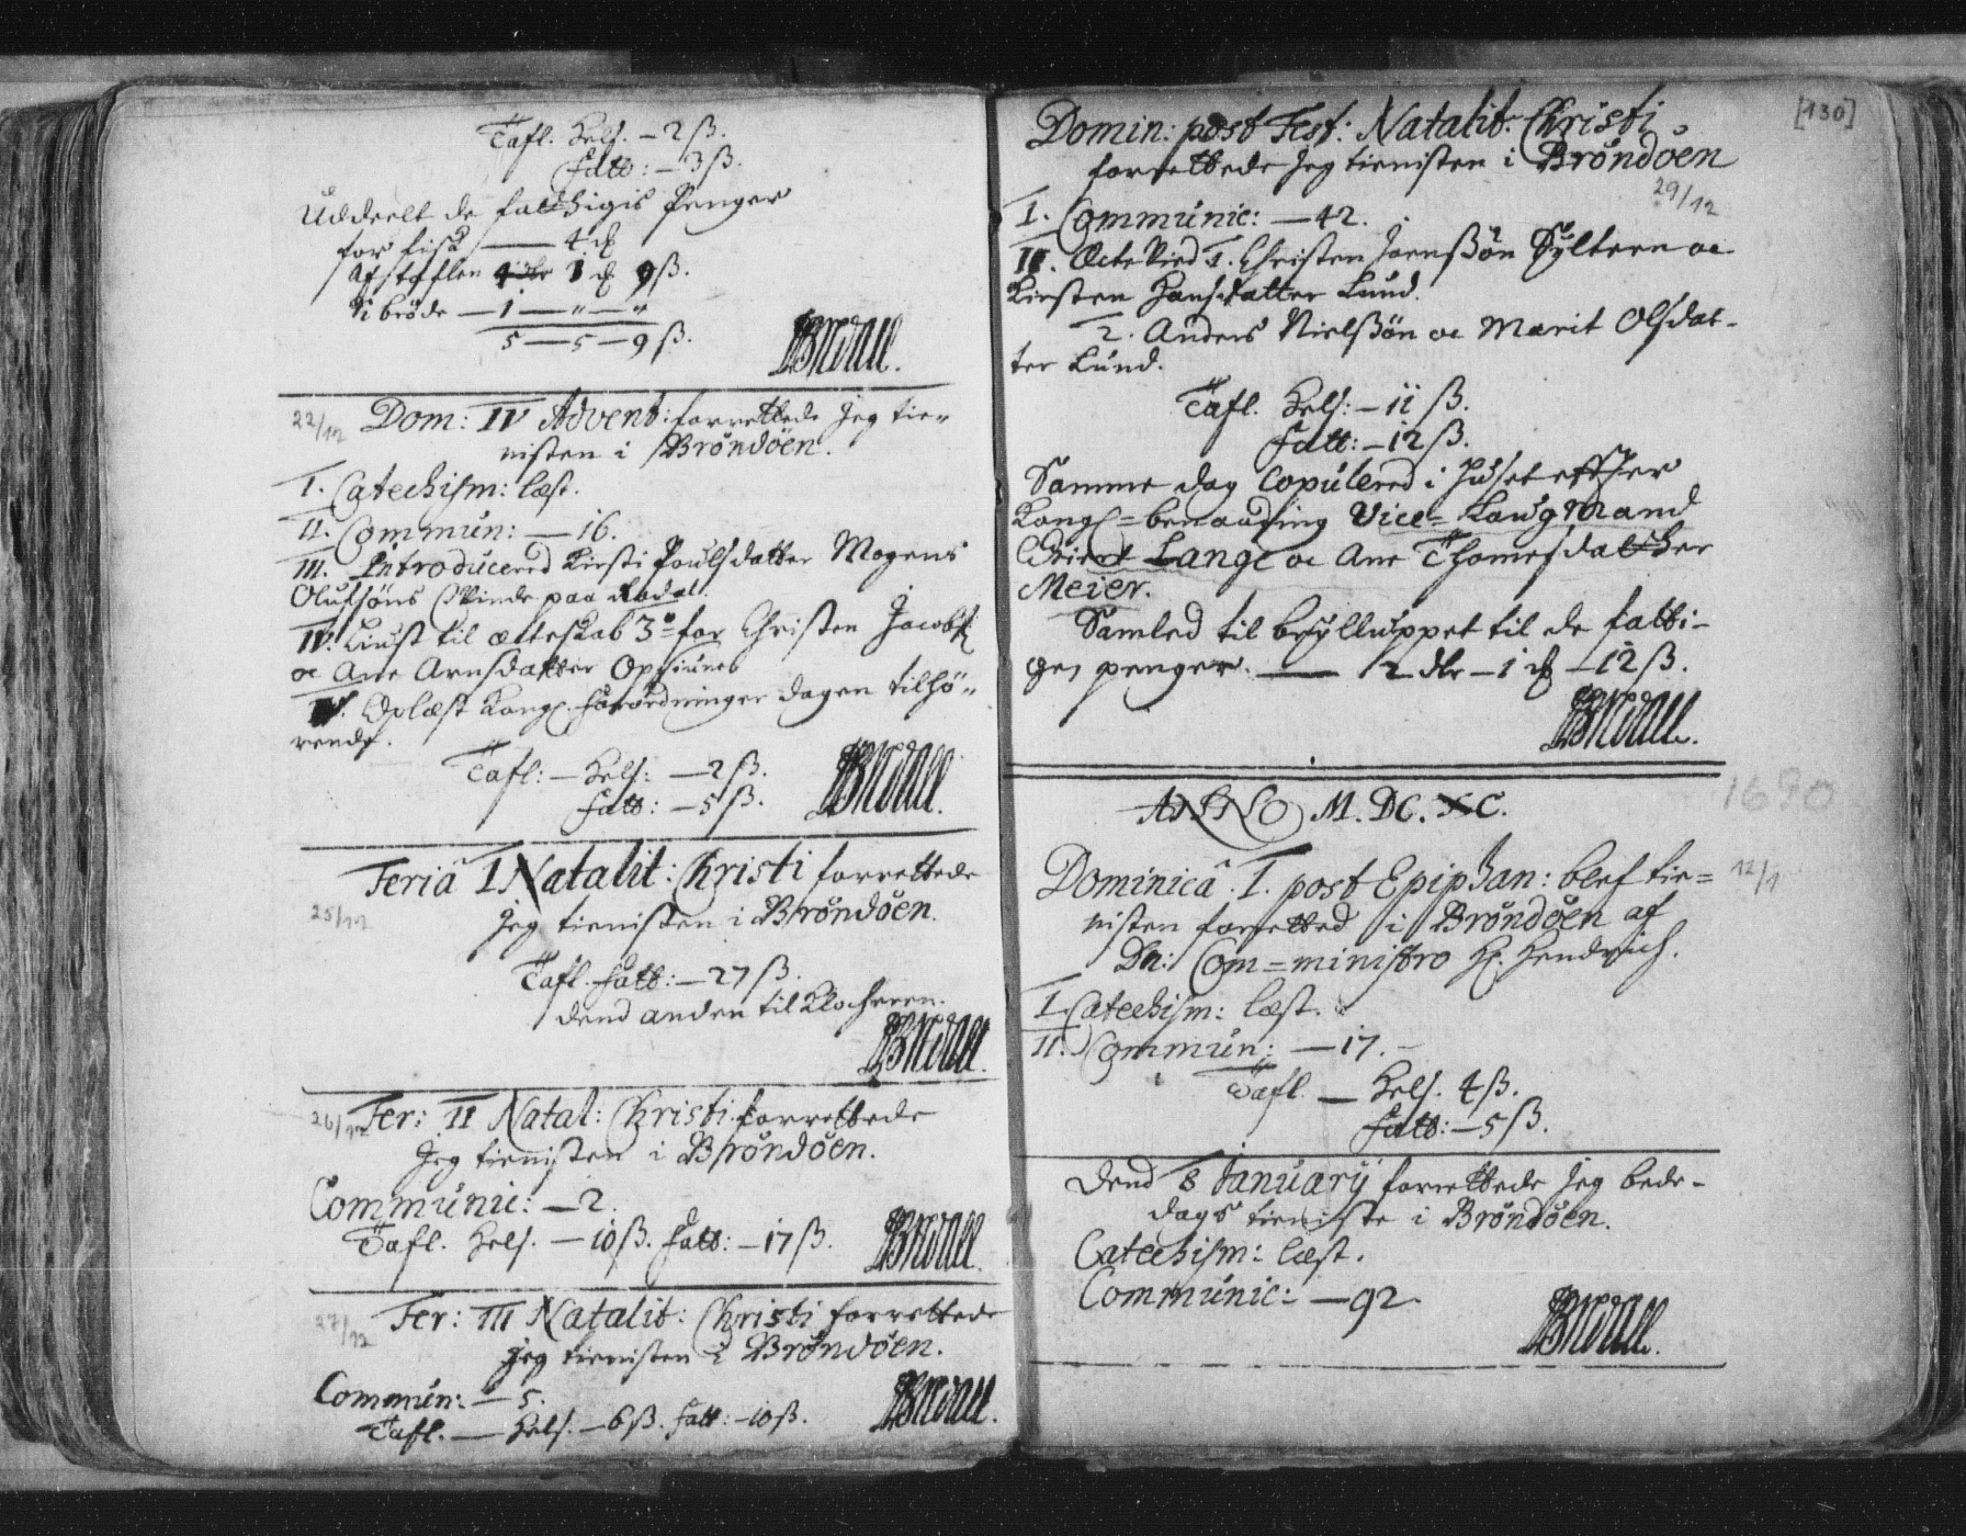 Tafl. Kels. – 2 ß.
Fatt: – 3 ß.
Uddeelt de fatthigis Penger
for fisk —— 4
Af tafflen 1 9 ß.
Vi brøde — 1 — " — "
5 — 5 — 9 ß.
22/12
Dom: IV Advent: forrettede Jeg tie-
nisten i Brøndöen.
I. Catechism: læst.
II. Commun: — 16.
III. Introducered Kirsti Poulsdatter Mogens
Olufsøns Qvinde paa
IV. Liust til ecteskab 3º for Christen Jacobs.
oc Ane Arnsdatter
V. Oplæst Kongl. forordninger dagen tilhö-
rende.
Tafl: — Kels: — 2 ß.
Fatt: — 5 ß.
Feriâ I Natalit: Christi forrettede
25/12
Jeg tienisten i Brøndöen.
Tafl. Fatt: — 27 ß.
dend anden til Klockeren.
26/12
Fer: II Natal: Christi forrettede
Jeg tienisten i Brøndöen.
Communic: — 2.
Tafl. Kels. — 10 ß. Fatt: — 17 ß.
27/12
Fer: III Natalit: Christi forrettede
Jeg tienisten i Brøndöen.
Commun: — 5.
Tafl. — Kels. — 6 ß. Fatt: – 10 ß.
[130]
Domin: post Fest: Natalit: Christi
forrettede Jeg tienisten i Brøndöen
29/12
I. Communic: — 42.
II. Ecte Vied 1. Christen Joenßøn Sÿltern oc
Kirsten Hansdatter Lund.
2. Anders Nielßøn oc Marit Olsdat-
ter Lund.
Tafl. Kels: — 11 ß.
Fatt: — 12 ß.
Samme dag Copulered i Huset effter
Kongl = benaading Vice = Laugmand
Lange oc Ane Thomesdatther
Meier.
Samled til brÿlluppet til de fatti-
ges penger. —— 2 dlr – 1 – 12 ß.
ANNO M. DC. XC.
1690
Dominicâ. I. post Epiphan: blef tie=
12/1
nisten forretted i Brøndöen af
Dn: Com = ministro H. Hendrich.
I. Catechism: læst.
II. Commun: — 17. –
Tafl. — Kels. 4 ß.
Fatt: — 5 ß.
Dend 8 Januarÿ forrettede Jeg bede-
dags tieniste i Brøndöen.
Catechism: læst.
Communic: — 92.